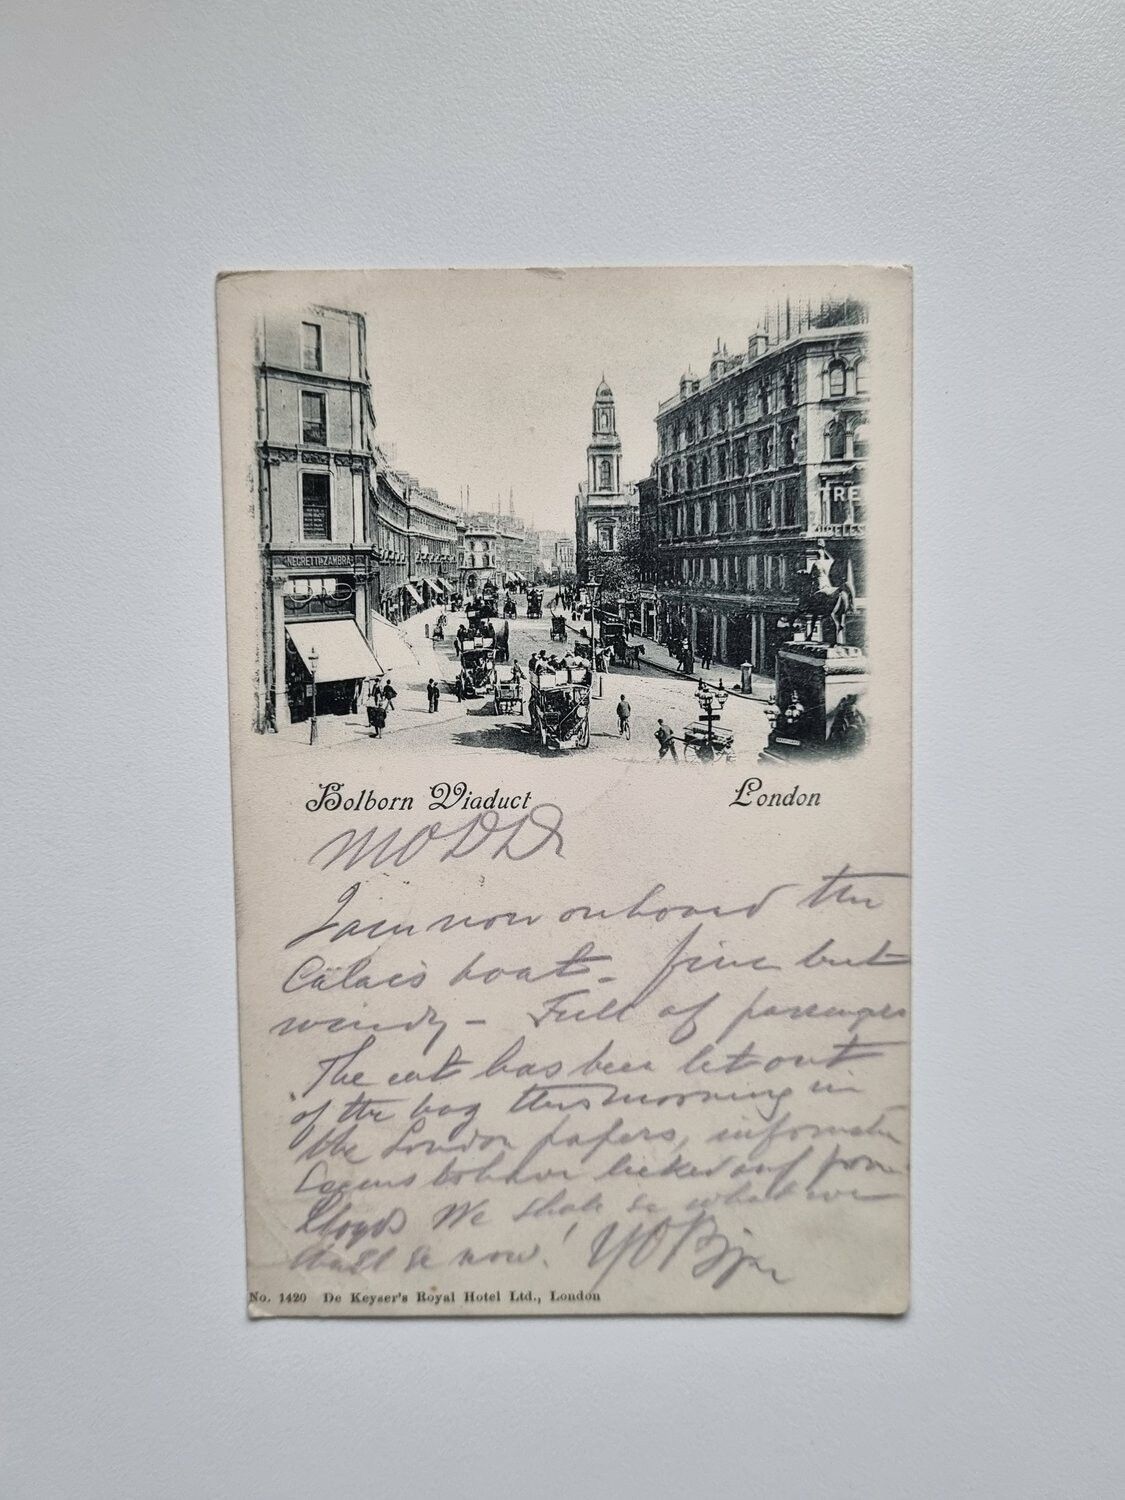 NEGRETTI & ZAMBRA
TRE
Holborn Viaduct London
MODD
I am now onboard the
Calais boat - fine but
windy - Full of passengers
The cat has been let out
of the bag this morning in
the London papers, informatn
seems to have leaked out from
Lloyds We shall se what we
shall se now!
No. 1420 De Keyser's Royal Hotel Ltd., London